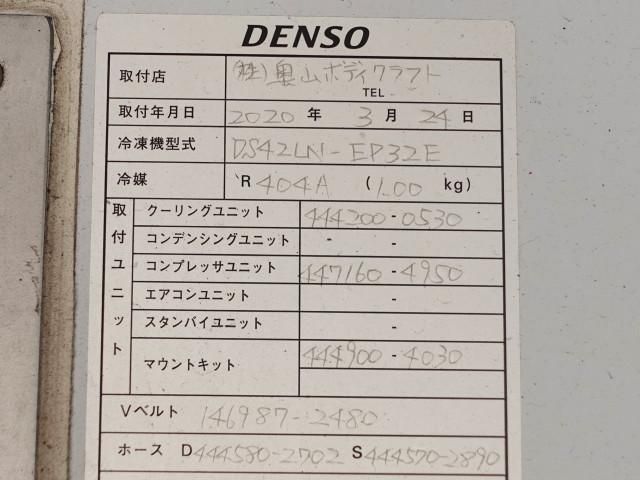 DENSO
取付店 ㈱奥山ボディクラフト
TEL
取付年月日 2020 年 3 月 24 日
冷凍機型式 DS42LN-EP32E
冷媒 R 404A (1.00 kg)
取付ユニット
クーリングユニット 444200-0530
コンデンシングユニット - -
コンプレッサユニット 447160-4950
エアコンユニット -
スタンバイユニット -
マウントキット 444900-4030
Vベルト 146987-2480
ホース D 444580-2702 S 444570-2890